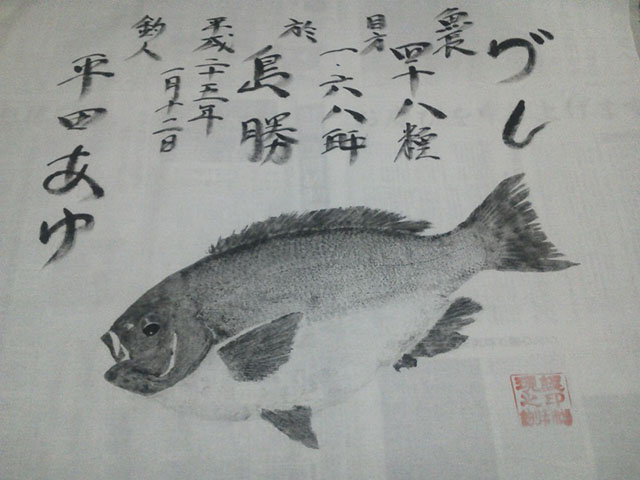 グレ
魚長
四十八糎
目方
一.六八瓩
於
島勝
平成二十五年
一月十二日
釣人
平田あゆ